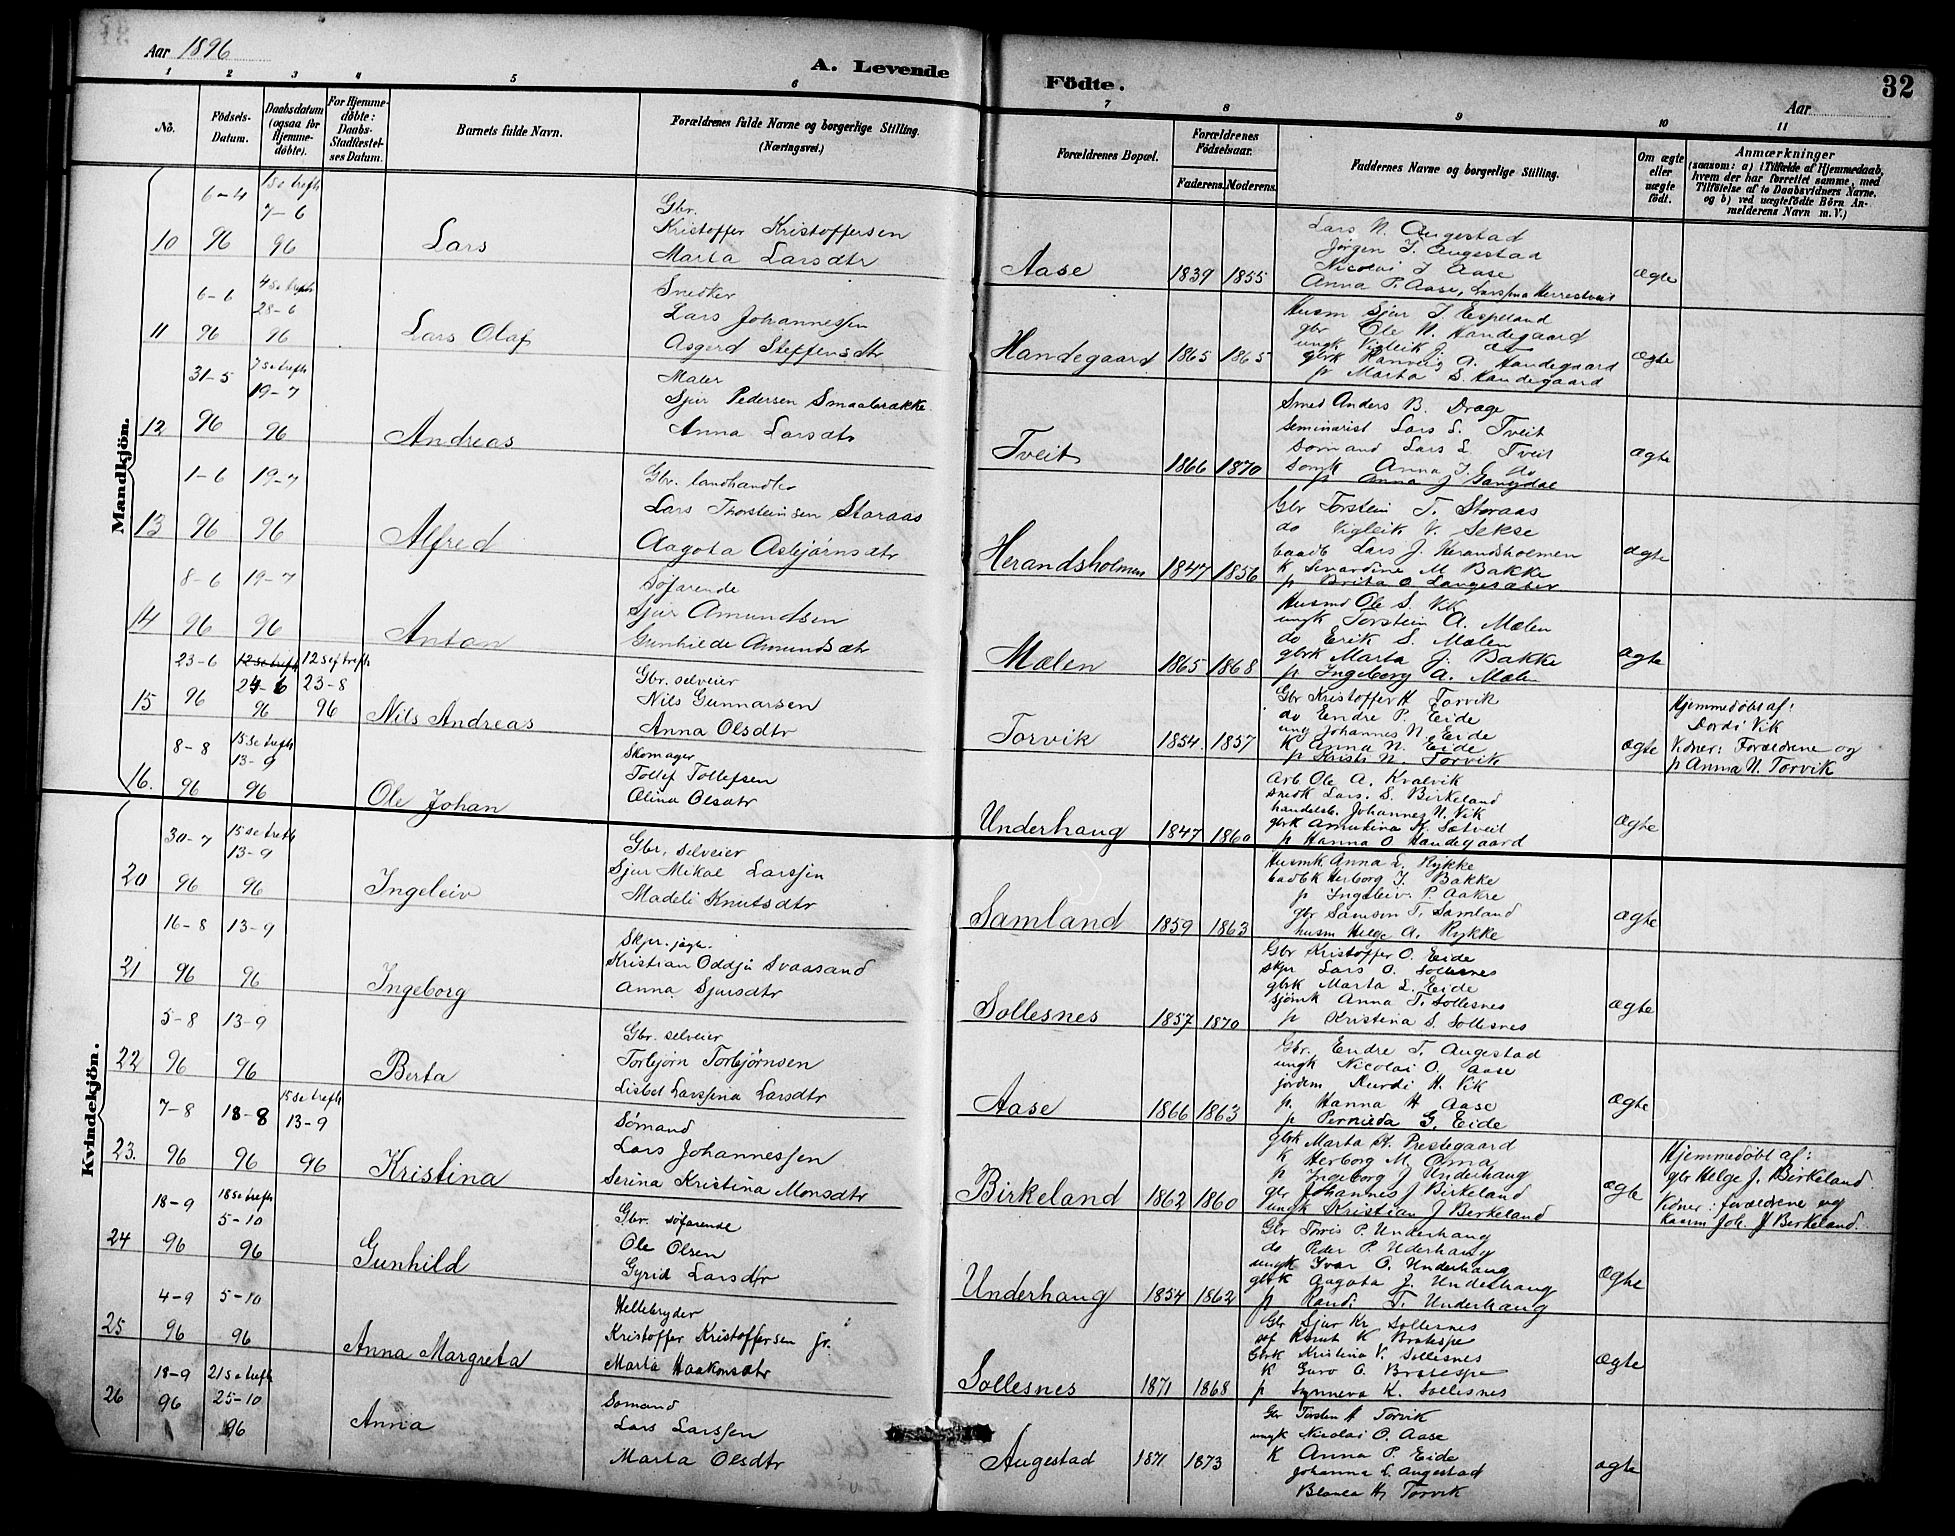 Aar 1896
A. Levende Födte.
Aar
32
1 2 3 4 5 6 7 8 9 10 11
No.
Födsels-Datum.
Daabsdatum (ogsaa for Hjemme-döbte).
For Hjemme-döbte: Daabs-Stadfæstel-ses Datum.
Barnets fulde Navn.
Forældrenes fulde Navne og borgerlige Stilling. (Næringsvei.)
Forældrenes Bopæl.
Forældrenes Födselsaar.
Faderens. Moderens.
Faddernes Navne og borgerlige Stilling.
Om ægte eller uægte födt.
Anmærkninger
(saasom: a) i Tilfælde af Hjemmedaab, hvem der har forrettet samme, med Tilföielse af to Daabsvidners Navne. og b) ved uægtefödte Börn An-melderens Navn m. V.)
Mandkjön.
10
6-4 96
1 se trefh 7-6 96
Lars
Gbr.
Kristoffer Kristoffersen
Marta Larsdtr
Aase 1839 1855
Lars N. Augestad
Jørgen T. Augestad
Nicolai J Aase
Anna P. Aase, Larsina Herrestveit
ægte
11
6-6 96
4 se trefh 28-6 96
Lars Olaf
Snedker
Lars Johannessen
Asgerd Steffensdtr
Handegaard 1865 1865
Husm Sjur J. Espeland
gbr Ole N. Handegaard
ungk Vigleik J. do
gbrk Hannis A. Handegaard
p Marta S. Handegaard
ægte
12
31-5 96
7 se trefh 19-7 96
Andreas
Maler
Sjur Pedersen Smaabrække
Anna Larsdtr
Tveit 1866 1870
Smed Anders B. Drage
seminarist Lars L. Tveit
sømand Lars L. Tveit
sømk Anna J. do
p Anna J Gangdal
ægte
13
1-6 96
19-7 96
Alfred
Gbr. landhandler
Lars Thorsteinsen Staraas
Aagota Asbjørnsdtr
Herandsholmen 1847 1856
Gbr Torstein T. Storaas
do Vigleik V. Sekse
baadb Lars J. Herandsholmen
k Sevardine M Bakke
p Brita O Langesæter
ægte
14
8-6 96
19-7 96
Anton
Søfarende
Sjur Amundsen
Gunhilde Amundsdtr
Mælen 1865 1868
Husmd Ole S. Vik
ungk Torstein A. Mælen
do Erik S. Mælen
gbrk Marta J. Bakke
p Ingeborg A. Mælen
ægte
15
23-6 96
12 se trefh 24-6 96
12 sef trefh 23-8 96
Nils Andreas
Gbr. selveier
Nils Gunnarsen
Anna Olsdtr
Torvik 1854. 1857
Gbr Kristoffer H Torvik
do Endre P. Eide
ung Johannes N. Eide
K Anna N. Eide
p Kristi N. Torvik
ægte
Hjemmedøbt af:
Dordi Vik
Vdner: Forældrene og
p Anna N. Torvik
16.
8-8 96
15 se trefh 13-9 96
Ole Johan
Skomager
Tollef Tollefsen
Olina Olsdtr
Underhaug 1847 1860
Arb Ole A. Kvalvik
snedk Lars. S. Birkeland
handelsb. Johannes N. Vik
gbrk Amutina K. Sætveit
p Hanna O Handegaard
ægte
Kvindekjön.
20
30-7 96
15 se trefh 13-9 96
Ingeleiv
Gbr, selveier
Sjur Mikal Larssen
Madeli Knutsdtr
Samland 1859 1863
Husmk Anna L. Rykke
baadbk Herborg J. Bakke
p Ingeleiv P. Aakre
gbr Samson T. Samland
husm Helge A. Rykke
ægte
21
16-8 96
13-9 96
Ingeborg
Skpr. jagt.
Kristian Oddju Svaasand
Anna Sjursdtr
Sollesnes 1857 1870
Gbr Kristoffer O. Eide
skpr Lars O. Sollesnes
gbrk Marta L. Eide
sjømk Anna T. Sollesnes
p Kristina S. Sollesnes
ægte
22
5-8 96
13-9 96
Berta
Gbr. selveier
Torbjørn Torbjørnsen
Lisbet Larssina Larsdtr
Aase 1866 1863
Gbr. Endre T. Augestad
ungk Nicolai O. Aase
jordem Durdi H. Vik
p. Hanna H Aase
p Pernieda G. Eide
ægte
23.
7-8 96
18-8 96
15 se trefh 13-9 96
Kristina
Sømand
Lars Johannessen
Serina Kristina Monsdtr
Birkeland 1862 1860
gbrk Marta H. Prestegaard
K Herborg M. Oma
p Ingeborg J Underhaug
gbr Johannes J Birkeland
ungk Kristian J Berkeland
ægte
Hjemmedøbt af:
gbr Helge J. Birkeland
Vdner: forældrene og
kaarm Joh. J Birkeland
24
18-9 96
18 se trefh 5-10 96
Gunhild
Gbr. søfarende
Ole Olsen
Gyrid Larsdtr
Underhaug 1854 1862
Gbr Torris P. Underhaug
do Peder P. Uderhaug
ungk Ivar O. Underhaug
gbrk Aagata J. Underhaug
p Randi T. Underhaug
ægte
25
4-9 96
5-10 96
Anna Margreta
Hellebryder
Kristoffer Kristoffersen jr.
Marta Haakonsdtr
Sollesnes 1871 1868
Gbr Sjur Kr. Sollesnes
søf Knut K Bratespe
Gbrk Kristina V. Sollesnes
K Guro O. Bratespe
p Synneva K. Sollesnes
ægte
26
18-9 96
21 se trefh 25-10 96
Anna
Sømand
Lars Larssen
Marta Olsdtr
Augestad 1871 1873
Gbr Torsten H Torvik
ungk Nicolai O. Aase
K Anna P. Eide
Johanna L. Augestad
Blanca H. Torvik
ægte